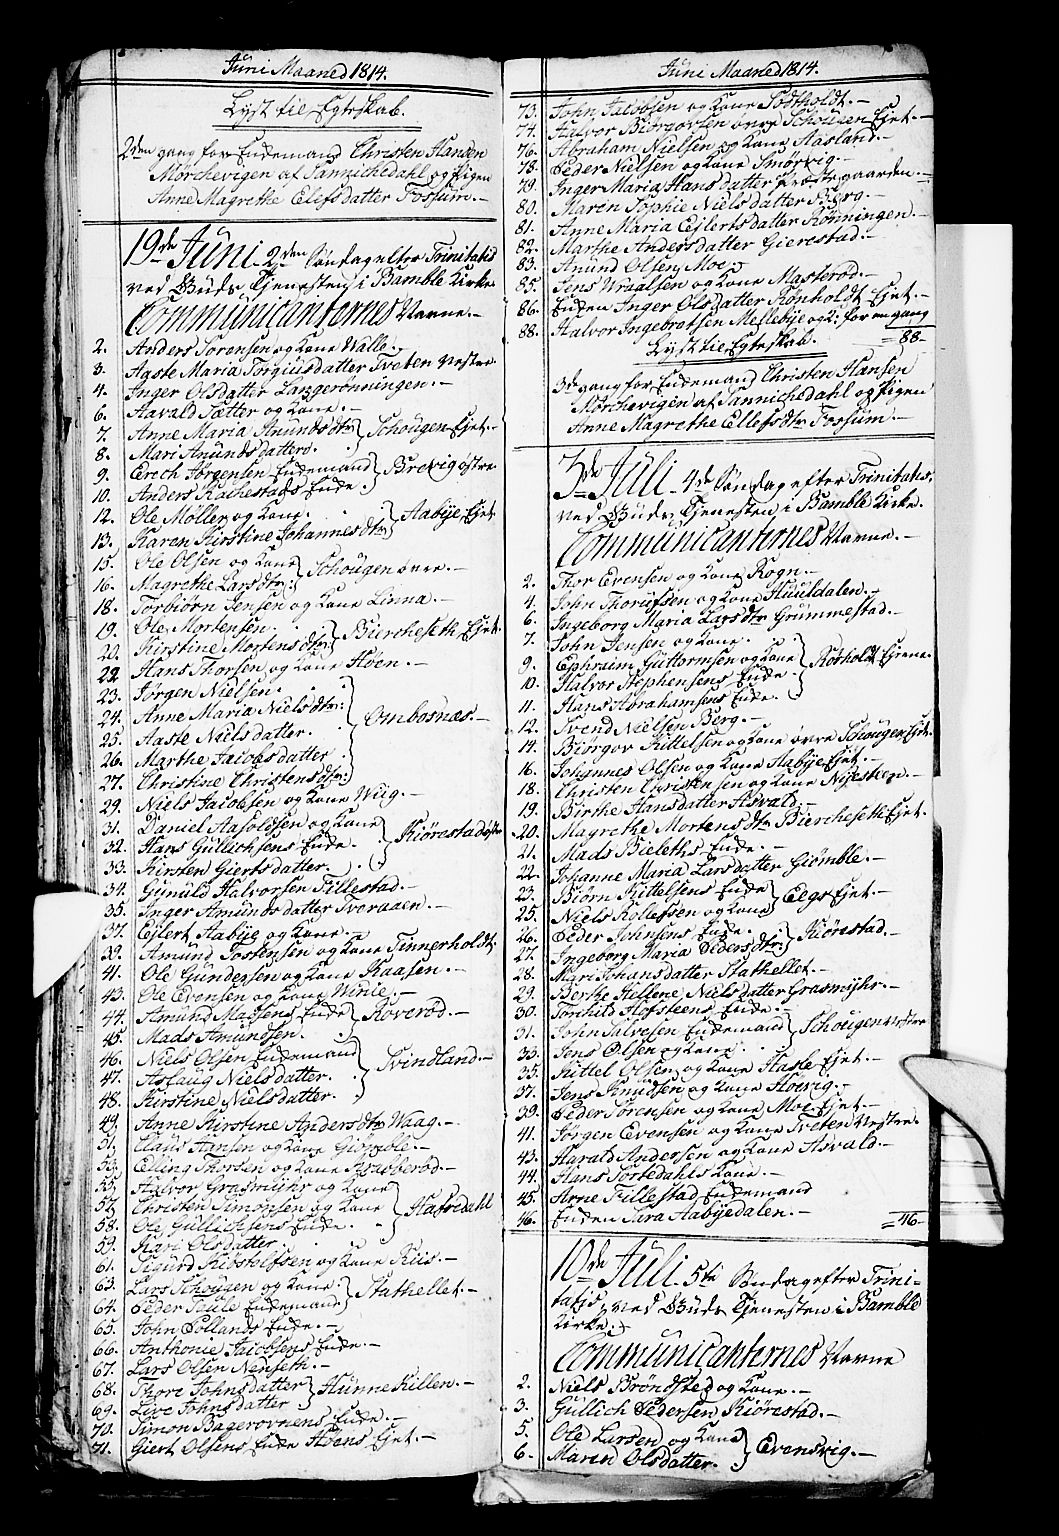 Juni Maaned 1814.
Lyst til Egteskab.
2den gang for Endemand Christen Hansen
Mörchevigen af Sannichedahl og Pigen
Anne Magrethe Elifsdatter Fossum.-
19de Juni 2den Söndag efter Trinitatis
ved Guds Tjenesten i Bamble Kirke
Communicanternes Navne.-
2. Anders Sörensen og Kone Walle.-
3. Aaste Maria Torgiusdatter Tveten vestre
4. Inger Olsdatter Langerönningen.-
6. Aavald Sætter og Kone.-
7. Anne Maria Amundsdtr } Schougen Ejet.-
8. Mari Amundsdatter.
9. Erich Jörgensen Endemand } Brevig östre
10. Anders Enke.
12. Ole Möller og Kone. } Aabye Ejet
13. Karen Kirstine Johannesdtr
15. Ole Olsen og Kone } Schougen övre.-
16. Magrethe Larsdtr:
18. Torbiörn Jensen og Kone Linna.-
19. Ole Mortensen. } Bircheseth Ejet
20. Kirstine Mortensdtr:
22. Hans Thorsen og Kone Höen.-
23. Jörgen Nielsen. } Ombosnæs.-
24. Anne Maria Nielsdtr:
25. Aaste Nielsdatter.
26. Marthe Jacobsdatter
27. Christine Christensdtr:
29. Niels Jacobsen og Kone Wiig.-
31. Daniel Aasoldsen og Kone } Kiörestad
32. Hans Gullichsens Enke.
33. Kirsten Giertsdatter.
34. Gunuld Halvorsen Tillestad.-
35. Inger Amundsdatter Tveraaen.-
37. Ejlert Aabye og Kone.-
39. Amund Tostensen og Kone Finnerholdt.
41. Ole Gundersen og Kone Kaasen.-
43. Ole Evensen og Kone Winie.-
44. Amund Madsens Enke } Roveröd.-
45. Mads Amundsen.
46. Niels Olsen Endemand } Trindland.-
47. Aslaug Nielsdatter.
48. Kirstine Nielsdatter.
49. Anne Kirstine Andersdtr Waag.-
51. Claus Hansen og Kone Giömble.-
53. Elling Thorsen og Kone
55. Halvor Grasmyhr og Kone } Hafredahl
57. Christen Simonsen og Kone
58. Ole Gullichsens Enke.
59. Kari Olsdatter.
61. Sigurd og Kone Riis.-
63. Lars Schougen og Kone. } Stathellet.-
64. Peder Teule Endemand
65. John Pollands Enke.-
66. Anthonie Jacobsens Enke.-
67. Lars Olsen Nenseth.-
68. Thore Johnsdatter } Hunne Killen.-
69. Live Johnsdatter
70. Simon Bagerovnens Enke.-
71. Giert Olsens Enke Höens Ejet.-
Juni Maaned 1814.
73. John Jacobsen og Kone Rödtholdt.-
74. Halvor Biörgorsen övre Schougen Ejet.-
76. Abraham Nielsen og Kone Aasland.-
78. Peder Nielsen og Kone Smörvig.-
79. Inger Maria Hansdatter Præstegaarden.-
80. Maren Sophie Nielsdatter Berg.-
81. Anne Maria Ejlertsdatter Rönningen.-
82. Marthe Andersdatter Gierestad.-
83. Amund Olsen Moe.-
85. Jens Wraalsen og Kone Masteröd.-
86. Enken Inger Olsdatter Rönholdt Ejet.-
88. Halvor Ingebretsen Mellebye og K: for en gang
=88-
Lyst til Egteskab.
3de gang for Endemand Christen Hansen
Mörchevigen af Sannichedahl og Pigen
Anne Magrethe Ellefsdtr Fossum.-
3de Juli 4de Söndag efter Trinitatis.
ved Guds Tjenesten i Bamble Kirke.
Communicanternes Navne.-
2. Thor Evensen og Kone Rogn.-
4. John Thorufsen og Kone Huuldalen.-
6. Ingeborg Maria Larsdtr Grummestad.-
7. John Jensen og Kone. } Rötholdt Ejerne.
9. Ephraim Guttormsen og Kone
10. Halvor Stephensens Enke.
11. Hans Abrahamsens Enke.
12. Svend Nielsen Berg.-
14. Biörgor Kittelsen og Kone övre Schougen Ejet.
16. Johannes Olsen og Kone Aabye Ejet.-
18. Christen Christensen og Kone Nyestuen.-
19. Birthe Hansdatter Asvald.-
20. Magrethe Mortensdtr Biercheseth Ejet.
21. Mads Bieleths Enke.-
22. Johanne Maria Larsdatter Giömble.-
23. Biörn Kittelsens Enke } Eegs Ejet.-
25. Niels Rollefsen og Kone
26. Peder Johnsens Enke. } Kiörestad.-
27. Ingeborg Maria Pedersdtr:
28. Mari Johansdatter Stathellet.-
29. Berthe Hellene Nielsdatter Grasmyhr.-
30. Torchild Hofsteens Enke.-
31. John Alvesen Endemand } Schougen vestre
33. Jens Olsen og Kone.
35. Kittel Olsen og Kone Haslе Ejet.-
37. Jens Knudsen og Kone Höevig.-
39. Peder Sörensen og Kone Moe Ejet.-
41. Jörgen Evensen og Kone Tveten vestre.
43. Harald Andersen og Kone Asvald.-
44. Hans Tortedahls Kone.-
45. Arne Tillestad Endemand
46. Enken Sara Aabyedalen.- =46-
10de Juli 5te Söndag efter Trini-
tatis, ved Guds Tjenesten i Bamble
Kirke.
Communicanternes Navne
2. Niels Bröndsted og Kone.-
3. Gullich Pedersen Kiörestad.-
5. Ole Larsen og Kone } Evensvig.-
6. Maren Olsdatter.